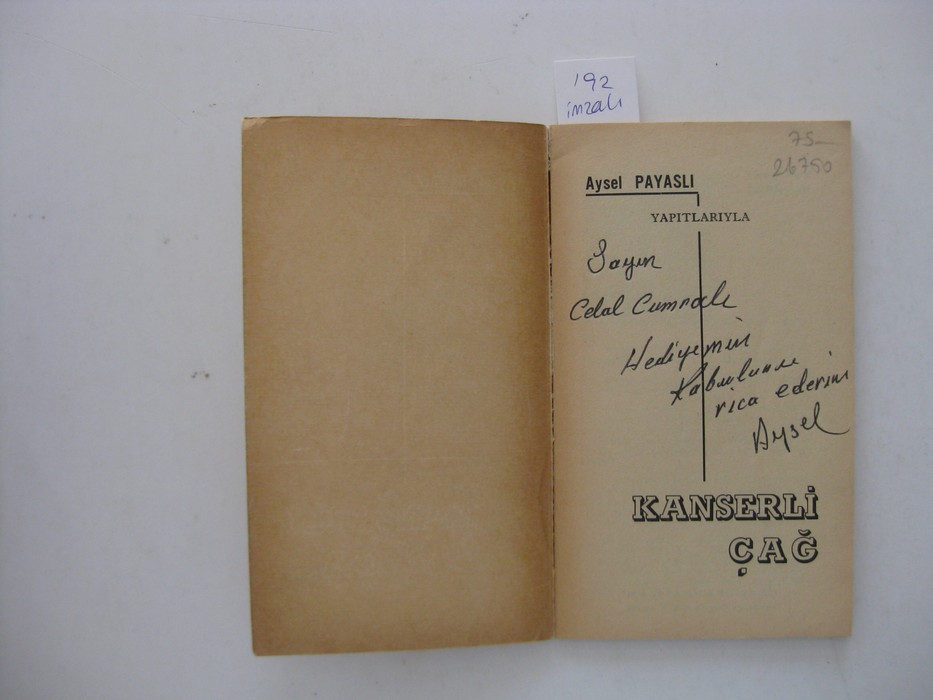 '92
imzalı
75-
26750
Aysel PAYASLI
YAPITLARIYLA
Sayın
Celal Cumralı
Hediyemin
Kabulunu
rica ederim
Aysel
KANSERLİ
ÇAĞ